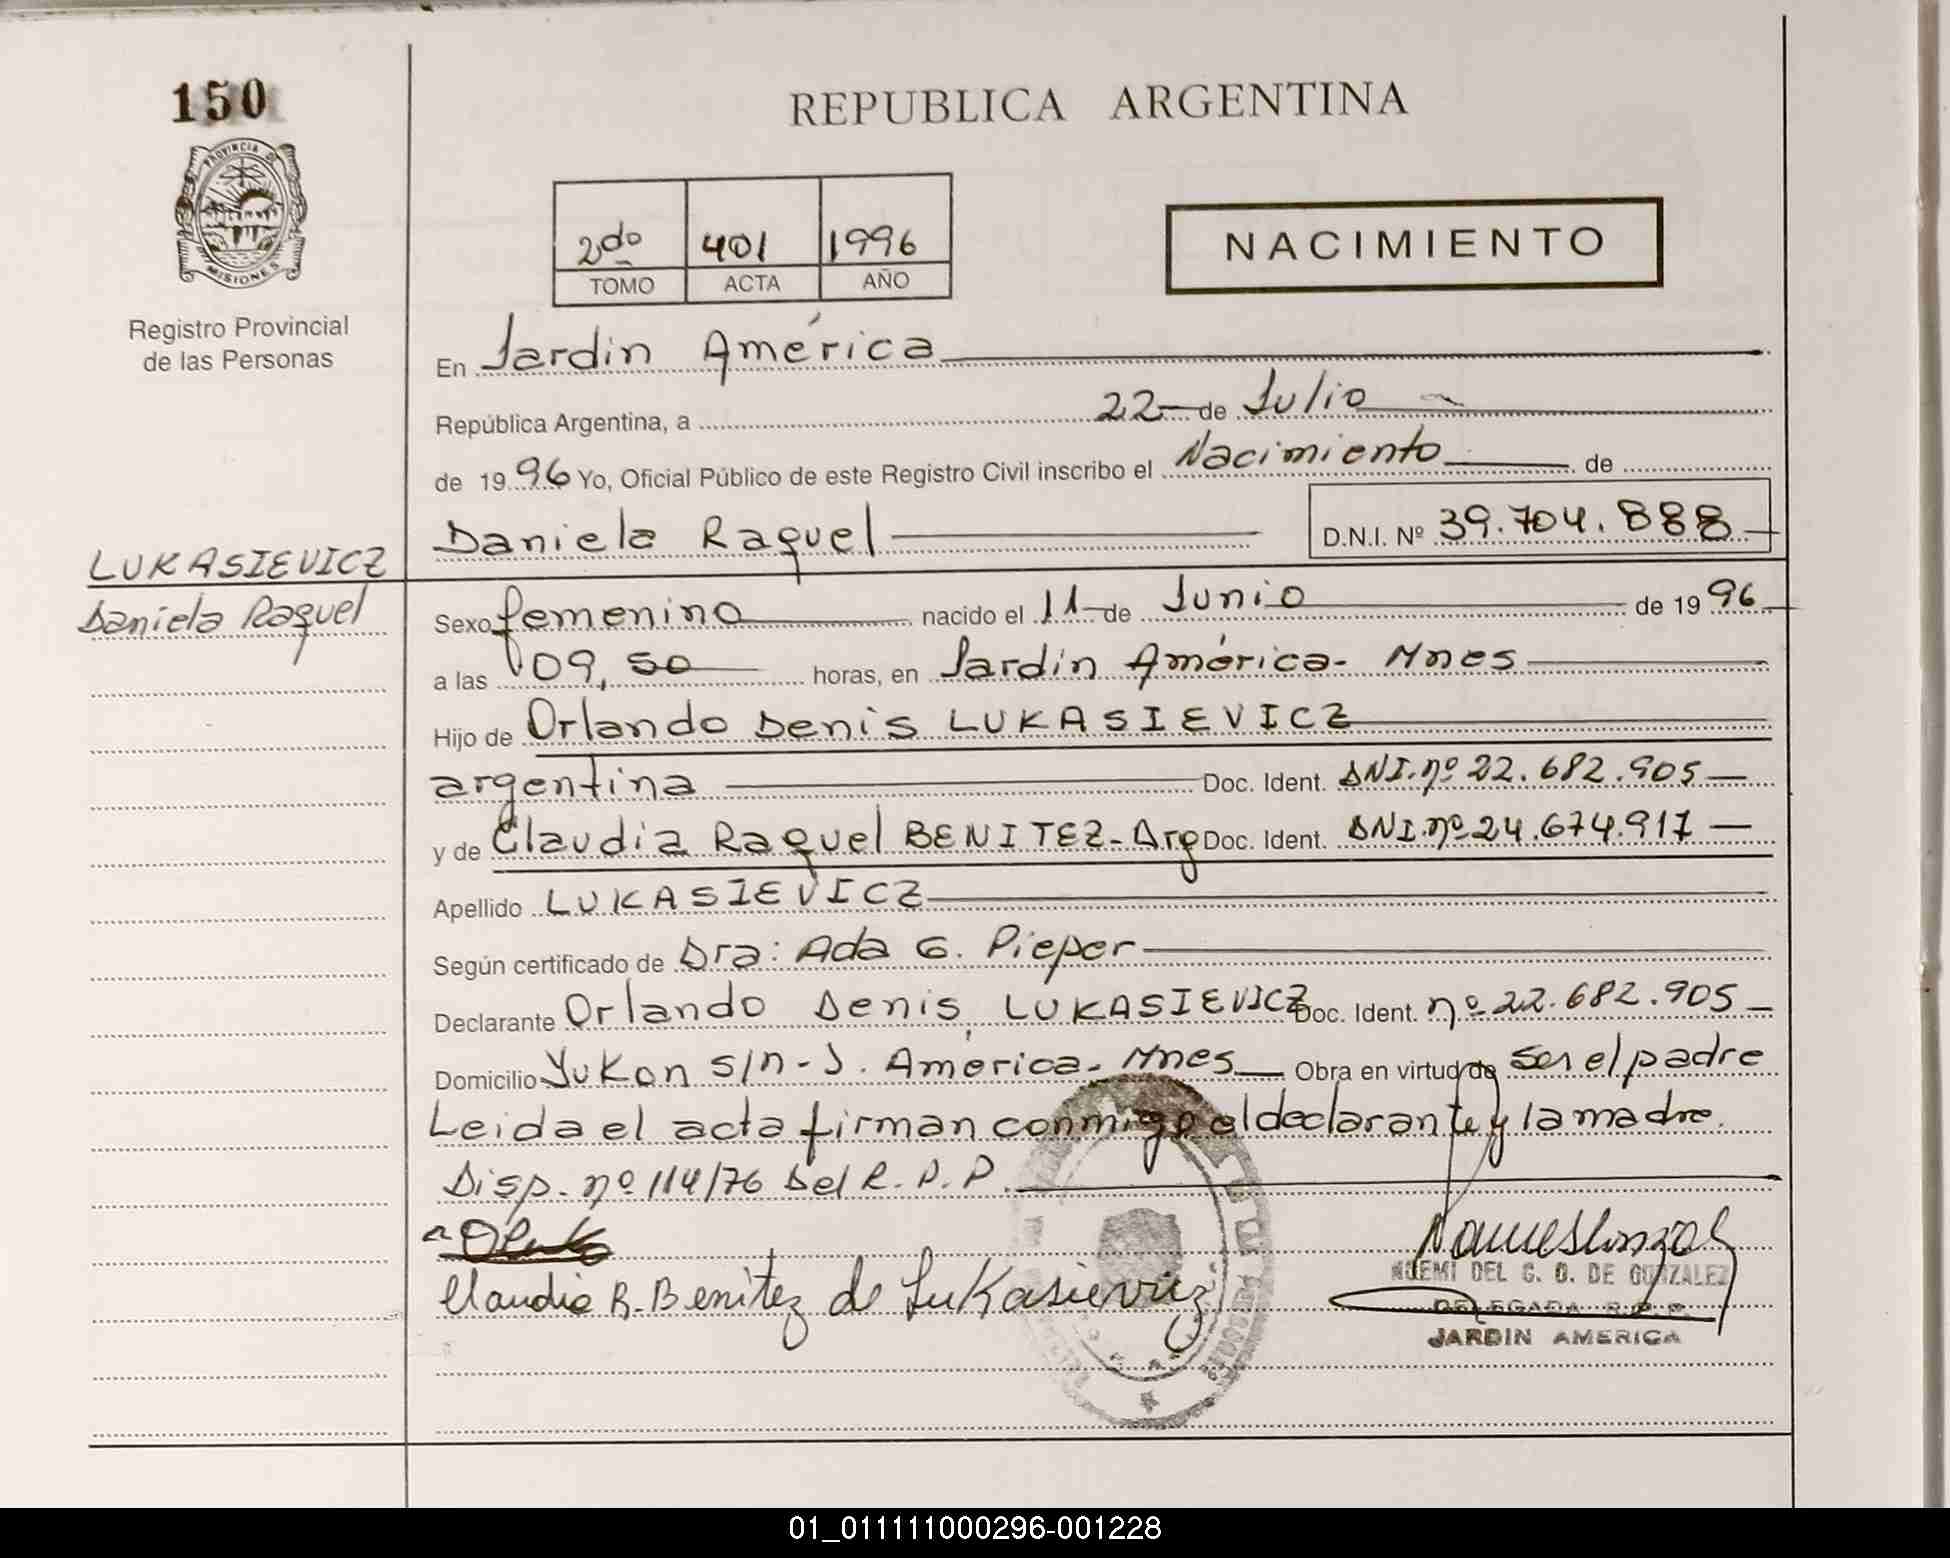 150
PROVINCIA DE
MISIONES
Registro Provincial
de las Personas
REPUBLICA ARGENTINA
2do 401 1996
TOMO ACTA AÑO
NACIMIENTO
En Jardin América
República Argentina, a 22 de Julio
de 1996 Yo, Oficial Público de este Registro Civil inscribo el Nacimiento de
Daniela Raquel D.N.I. Nº 39.704.888
LUKASIEVICZ
Daniela Raquel
Sexo femenino nacido el 11 de Junio de 1996
a las 09,50 horas, en Jardin América- Mnes
Hijo de Orlando Denis LUKASIEVICZ
argentina Doc. Ident. DNI.nº 22.682.905
y de Claudia Raquel BENITEZ-Arg Doc. Ident. DNI.nº 24.674.917
Apellido LUKASIEVICZ
Según certificado de Dra: Ada G. Pieper
Declarante Orlando Denis LUKASIEVICZ Doc. Ident. nº 22.682.905
Domicilio Yukon s/n - J. América- Mnes Obra en virtud de ser el padre
Leida el acta firman conmigo el declarante y la madre.
Disp. nº 114/76 Del R.P.P.
Claudia R. Benitez de Lukasievicz
NOEMI DEL C. O. DE GONZALEZ
DELEGADA R.P.P.
JARDIN AMERICA
01_011111000296-001228